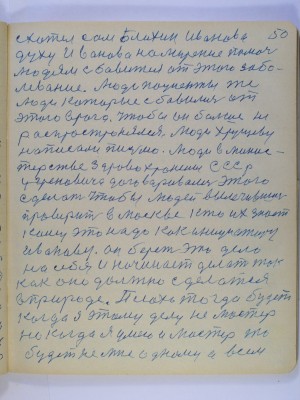 схотел сам Блохин Иванова 50
духу Иванова намерение помоч
людям сбавится от этого забо-
левание. Люди поциенты же
люди которые сбавился от
этого врага, чтобы он больше не
распространялся. Люди Хрущову
написали писмо. Люди в минис-
терстве здровохронении СССР
договаривались этого
сделат чтобы людей вылечивших
проверит в Москве кто их знает
кому это надо как никому этому
Иванову. он берет это дело
на себя и начинает делат так
как оно должно сделатся
в природе. Плохо тогда будет
когда я этому делу не мастер
но когда я умею и мастер то
будет не мне одному а всем